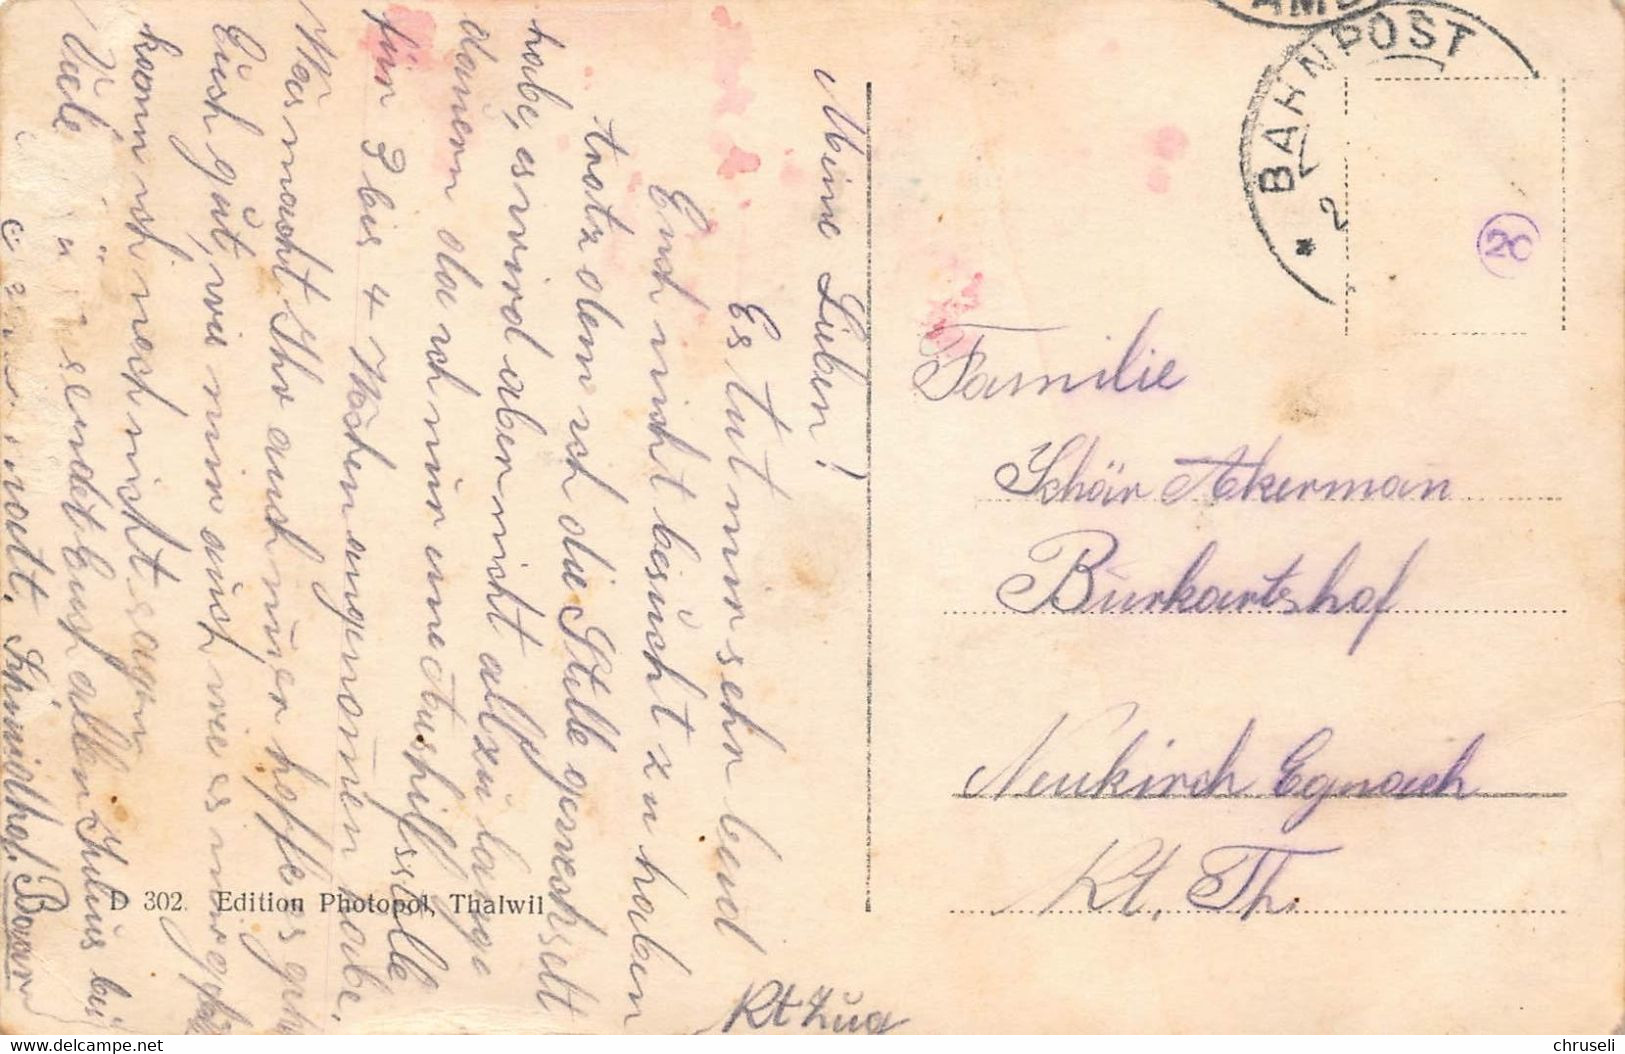 Meine Lieben!
Es tut mir sehr leid
Euch nicht besucht zu haben
trotz dem ich die Stelle gewechselt
habe, es wird aber nicht allzu lange
dauern da ich nur eine Aushilfsstelle
für 3 bis 4 Wochen angenomen habe.
Was macht Ihr auch immer hoffe es geht
Eüch güt, wie mir aüch wie es mir
kann ich noch nicht sagen
Viele sendet Euch allen Julius bei
Schmidhof. Baar
Kt Zug
D 302. Edition Photopol, Thalwil
AMB
BAHNPOST
* 2
20
Familie
Schär Akerman
Bürkartshof
Neukirch Egnach
Kt. Th.
www.delcampe.net
chruseli